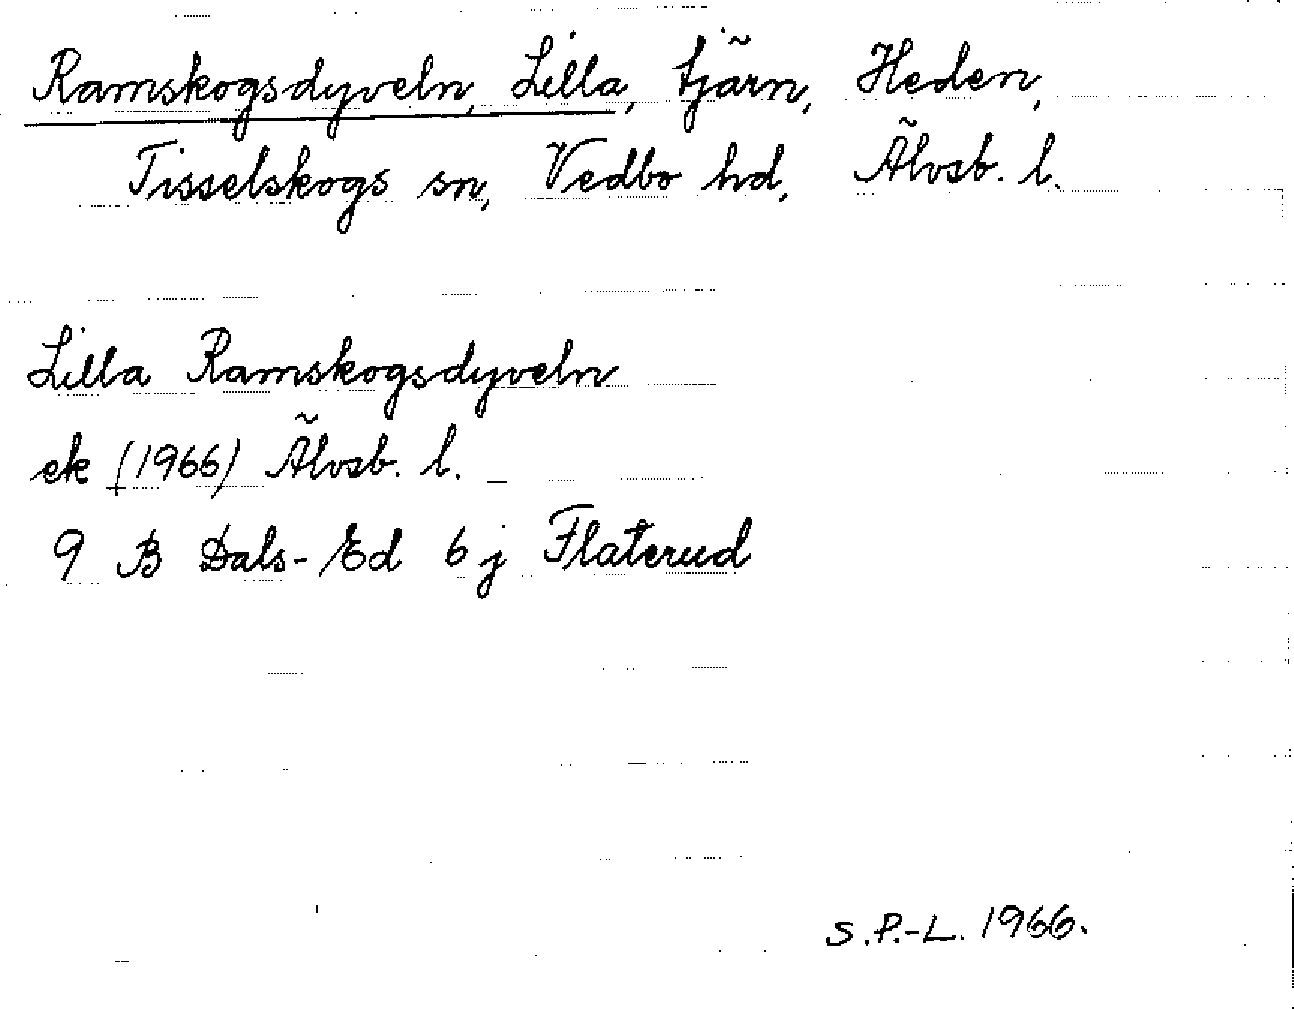 Ramskogsdyveln, Lilla, tjärn, Heden,
Tisselskogs sn, Vedbo hd, Älvsb. l.
Lilla Ramskogsdyveln
ek (1966) Älvsb. l.
9 B Dals-Ed 6 j Flaterud
S.P.-L. 1966.